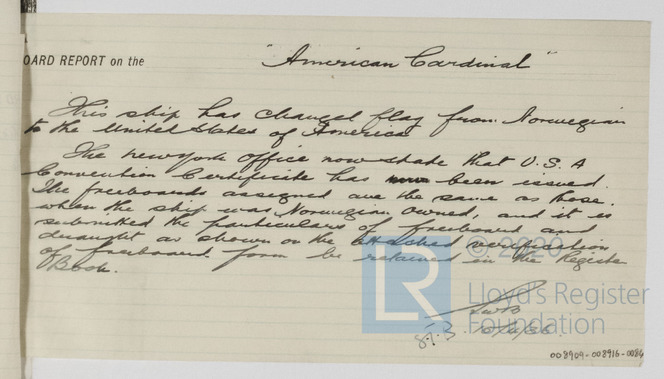 OARD REPORT on the "American Cardinal"
This ship has changed flag from Norwegian
to the United States of America
The new york office now state that U.S.A
Convention Certificate has been issued.
The freeboards assigned are the same as those
when the ship was Norwegian owned, and it is
submitted the particulars of freeboard and
draught as shown on the attached verification
of freeboard form be retained in the Register
Book.
© 2020
LR
Lloyd's Register
Foundation
008909-008916-0086